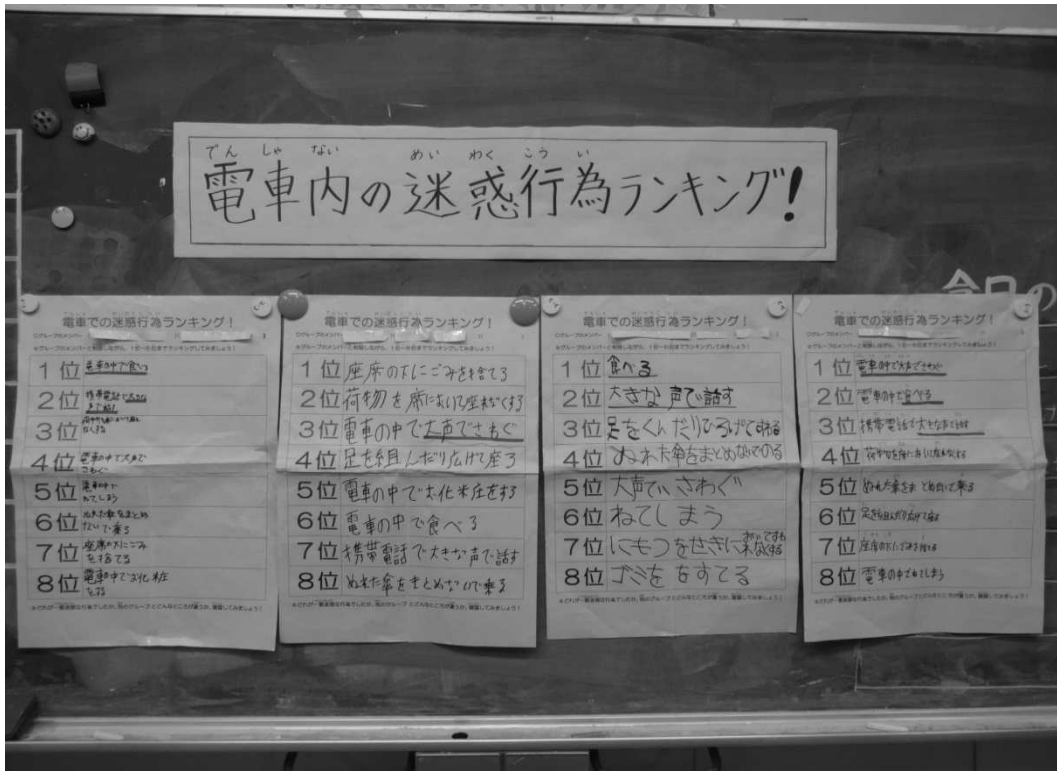 でんしゃない めいわくこうい
電車内の迷惑行為ランキング!
今日の
電車での迷惑行為ランキング!
○グループのメンバー
1位 電車の中で食べる
2位 携帯電話で大きな
声で話す
3位
4位 電車の中で大声で
さわぐ
5位 電車の中で
ねてしまう
6位 ぬれた傘をまとめ
ないで乗る
7位 座席の下にごみ
を捨てる
8位 電車の中でお化粧
をする
電車での迷惑行為ランキング!
○グループのメンバー
1位 座席の下にごみを捨てる
2位 荷物を席において座れなくする
3位 電車の中で大声でさわぐ
4位 足を組んだり広げて座る
5位 電車の中でお化粧をする
6位 電車の中で食べる
7位 携帯電話で大きな声で話す
8位 ぬれた傘をまとめないで乗る
電車での迷惑行為ランキング!
○グループのメンバー
1位 食べる
2位 大きな声で話す
3位 足をくんだりひろげてすわる
4位 ぬれた傘をまとめないでのる
5位 大声でさわぐ
6位 ねてしまう
7位 にもつをせきにおいてすわれなくする
8位 ゴミををすてる
電車での迷惑行為ランキング!
○グループのメンバー
1位 電車の中で大声でさわぐ
2位 電車の中で食べる
3位 携帯電話で大きな声で話す
4位
5位 ぬれた傘をまとめないで乗る
6位 足を組んだり広げて座る
7位 座席の下にごみを捨てる
8位 電車の中でねてしまう